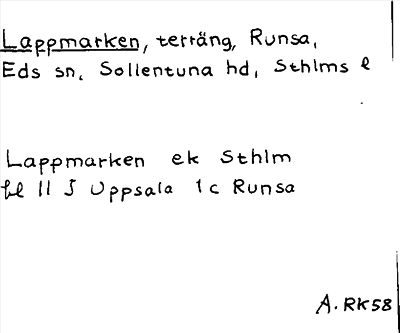 Lappmarken, terräng, Runsa,
Eds sn, Sollentuna hd, Sthlms l
Lappmarken ek Sthlm
bl 11 J Uppsala 1c Runsa
A. RK 58